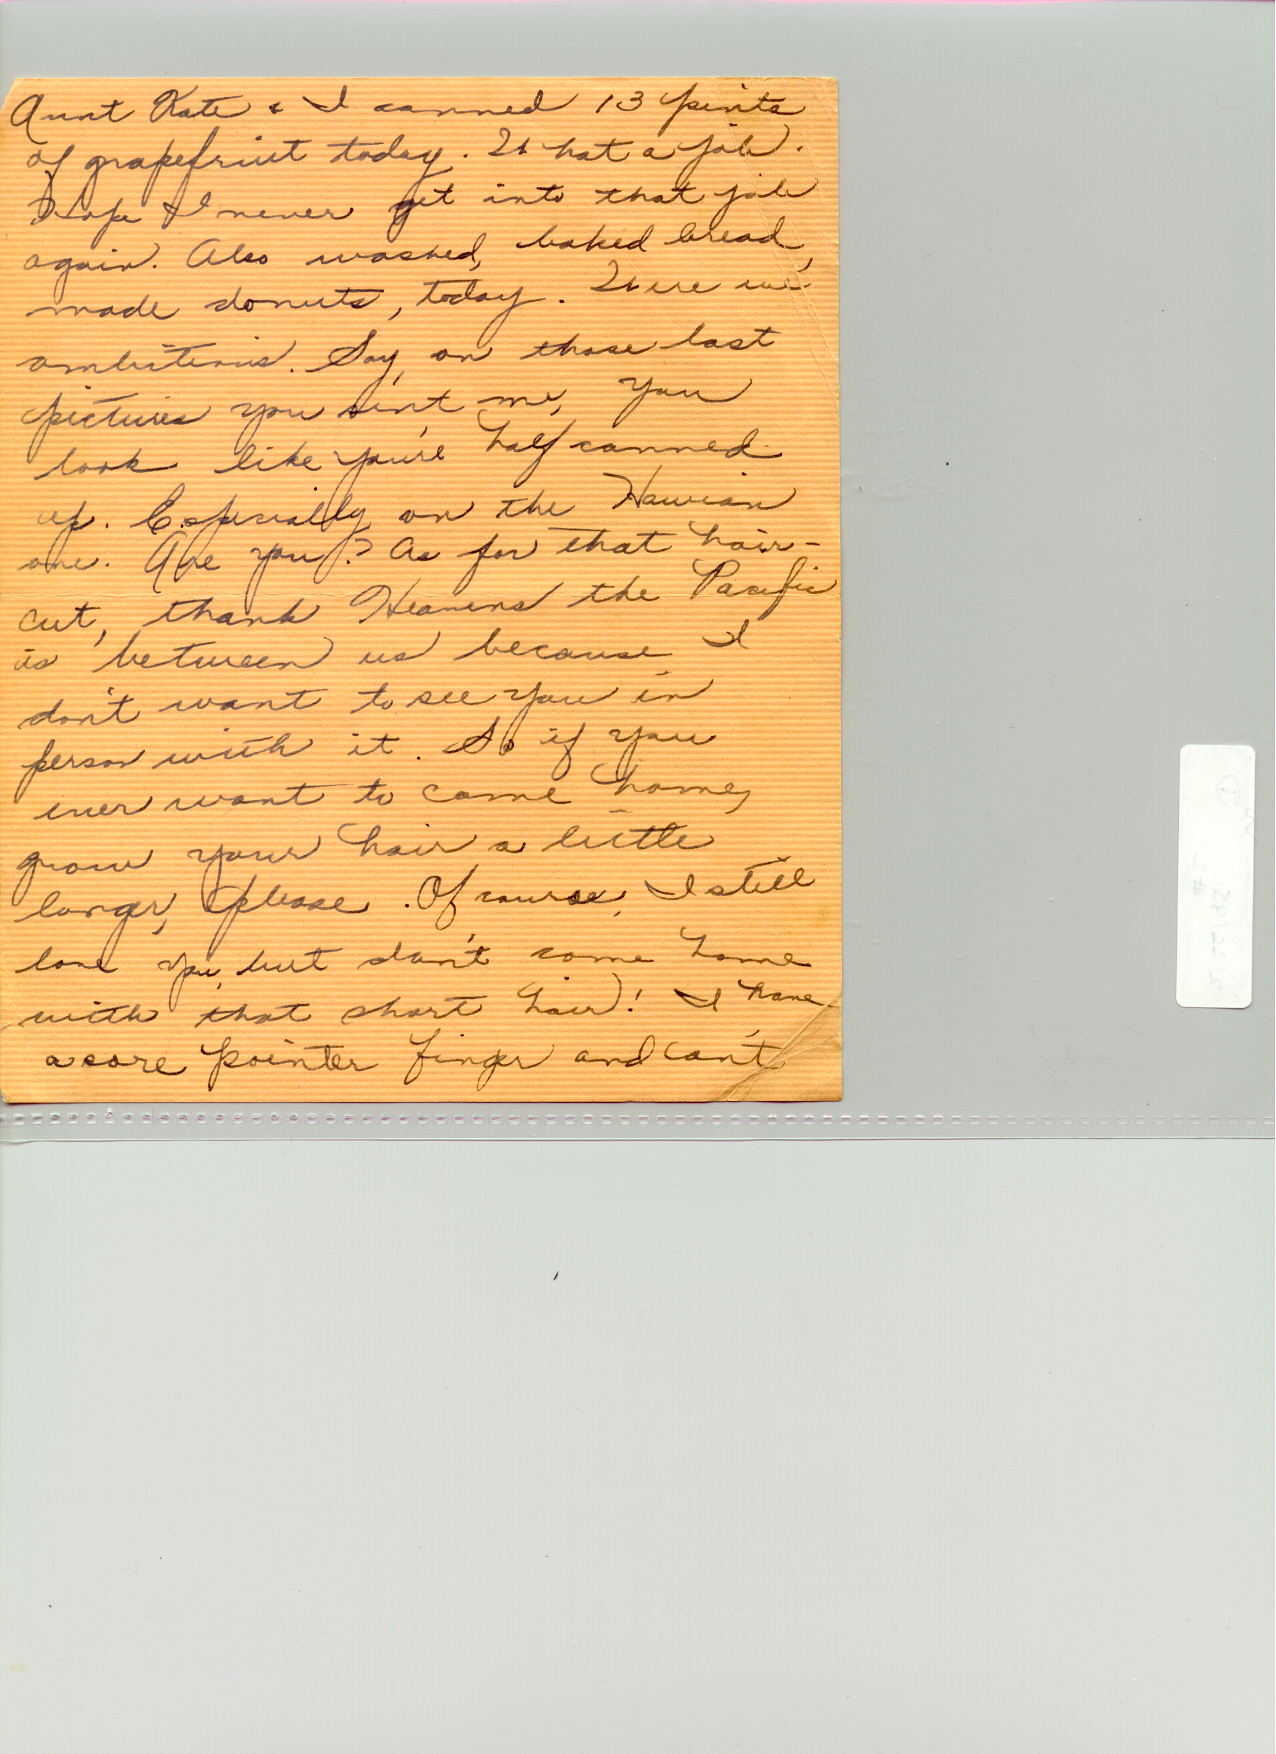 Aunt Kate & I canned 13 pints
of grapefruit today. What a job.
Hope I never get into that job
again. Also washed, baked bread,
made donuts, today. Were we
ambitious. Say, on those last
pictures you sent me, you
look like you're half canned
up. Especially on the Hawian
one. Are you? As for that hair-
cut, thank Heavens the Pacific
is between us because I
don't want to see you in
person with it. So if you
ever want to come home,
grow your hair a little
longer, please. Of course, I still
love you, but don't come home
with that short hair! I have
a sore pointer finger and can't